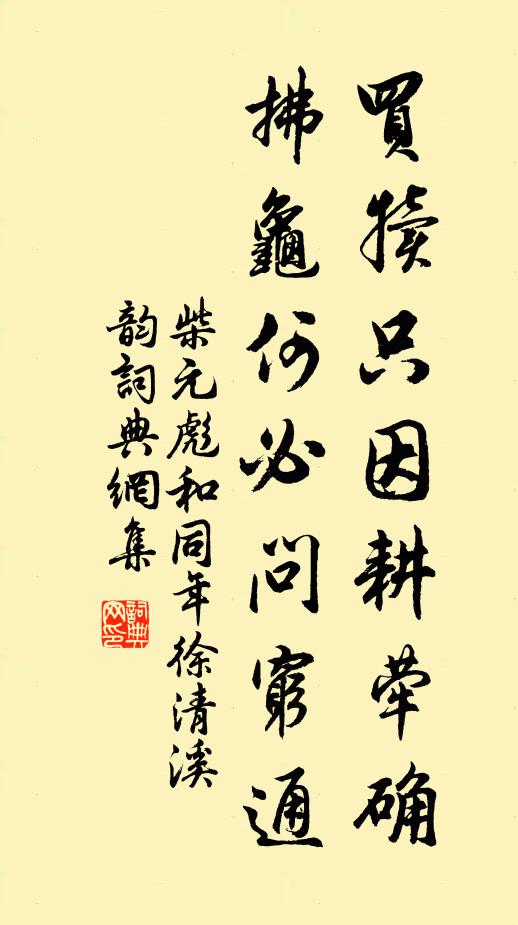 買犢只因耕犖确
拂龜何必問窮通
柴元彪和同年徐清溪
韵詞典網集
詞典网印